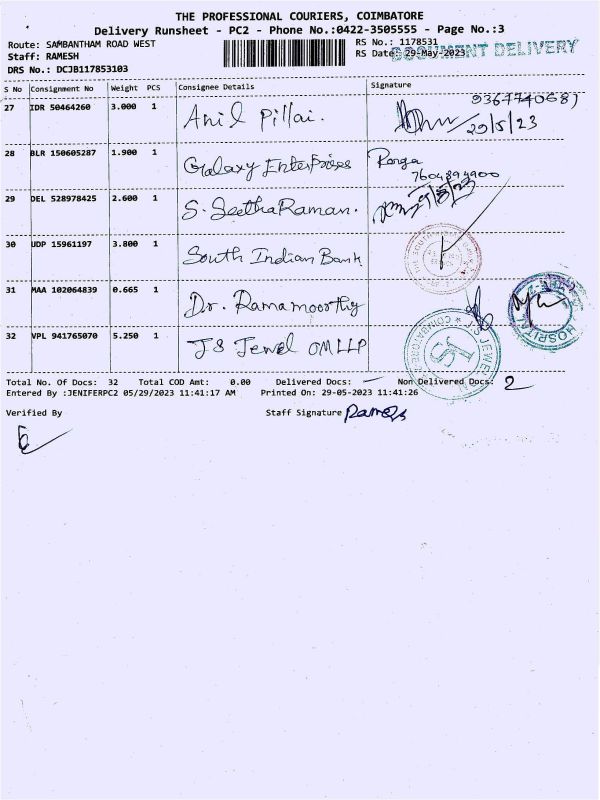 THE PROFESSIONAL COURIERS, COIMBATORE
Delivery Runsheet - PC2 - Phone No.:0422-3505555 - Page No.:3
Route: SAMBANTHAM ROAD WEST
RS No.: 1178531
Staff: RAMESH
RS Date: 29-May-2023
DOCUMENT DELIVERY
DRS No.: DCJB117853103
S No Consignment No Weight PCS Consignee Details Signature
27 IDR 50464260 3.000 1 Anil Pillai.
29/5/23
28 BLR 150605287 1.900 1 Galaxy Enterprises Ranga
7604894900
29 DEL 528978425 2.600 1 S. SeethaRaman.
30 UDP 15961197 3.800 1 South Indian Bank
31 MAA 102064839 0.665 1 Dr. Ramamoorthy
HOSPITAL
32 VPL 941765070 5.250 1 JS Jewel OMLLP
JS
COIMBATORE
Total No. Of Docs: 32 Total COD Amt: 0.00 Delivered Docs: — Non Delivered Docs: 2
Entered By :JENIFERPC2 05/29/2023 11:41:17 AM Printed On: 29-05-2023 11:41:26
Verified By
Staff Signature Ramesh